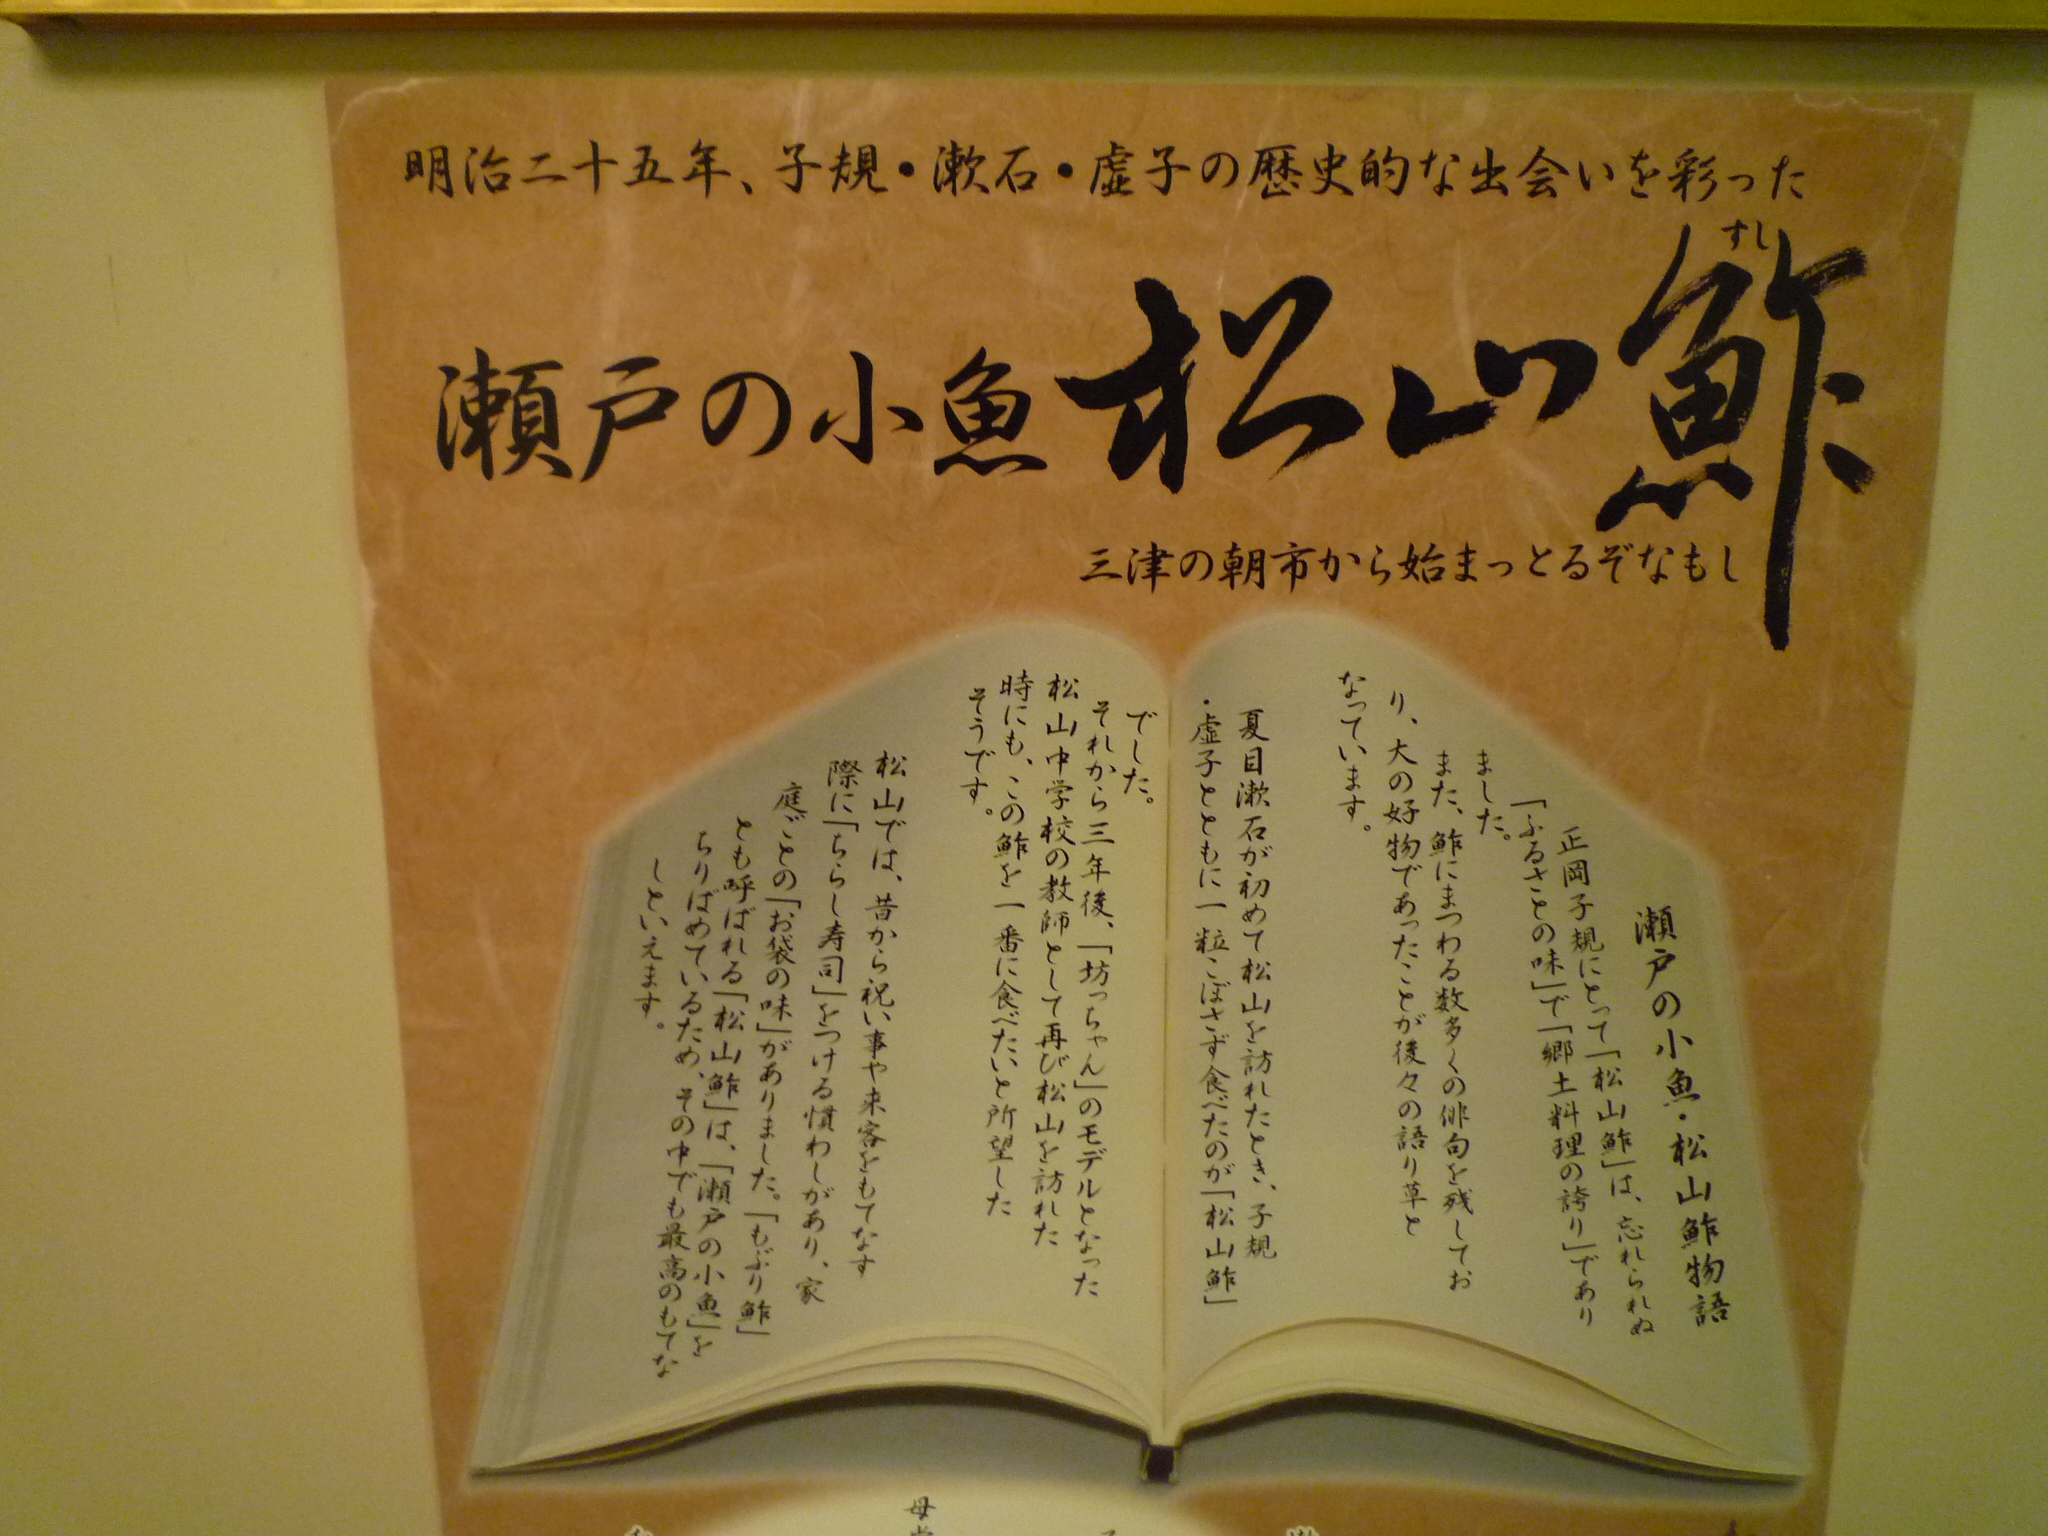 明治二十五年、子規・漱石・虚子の歴史的な出会いを彩った
すし
瀬戸の小魚松山鮓
三津の朝市から始まっとるぞなもし
瀬戸の小魚・松山鮓物語
正岡子規にとって「松山鮓」は、忘れられぬ
「ふるさとの味」で「郷土料理の誇り」であり
ました。
また、鮓にまつわる数多くの俳句を残してお
り、大の好物であったことが後々の語り草と
なっています。
夏目漱石が初めて松山を訪れたとき、子規
・虚子とともに一粒こぼさず食べたのが「松山鮓」
でした。
それから三年後、「坊っちゃん」のモデルとなった
松山中学校の教師として再び松山を訪れた
時にも、この鮓を一番に食べたいと所望した
そうです。
松山では、昔から祝い事や来客をもてなす
際に「ちらし寿司」をつける慣わしがあり、家
庭ごとの「お袋の味」がありました。「もぶり鮓」
とも呼ばれる「松山鮓」は、「瀬戸の小魚」を
ちりばめているため、その中でも最高のもてな
しといえます。
母